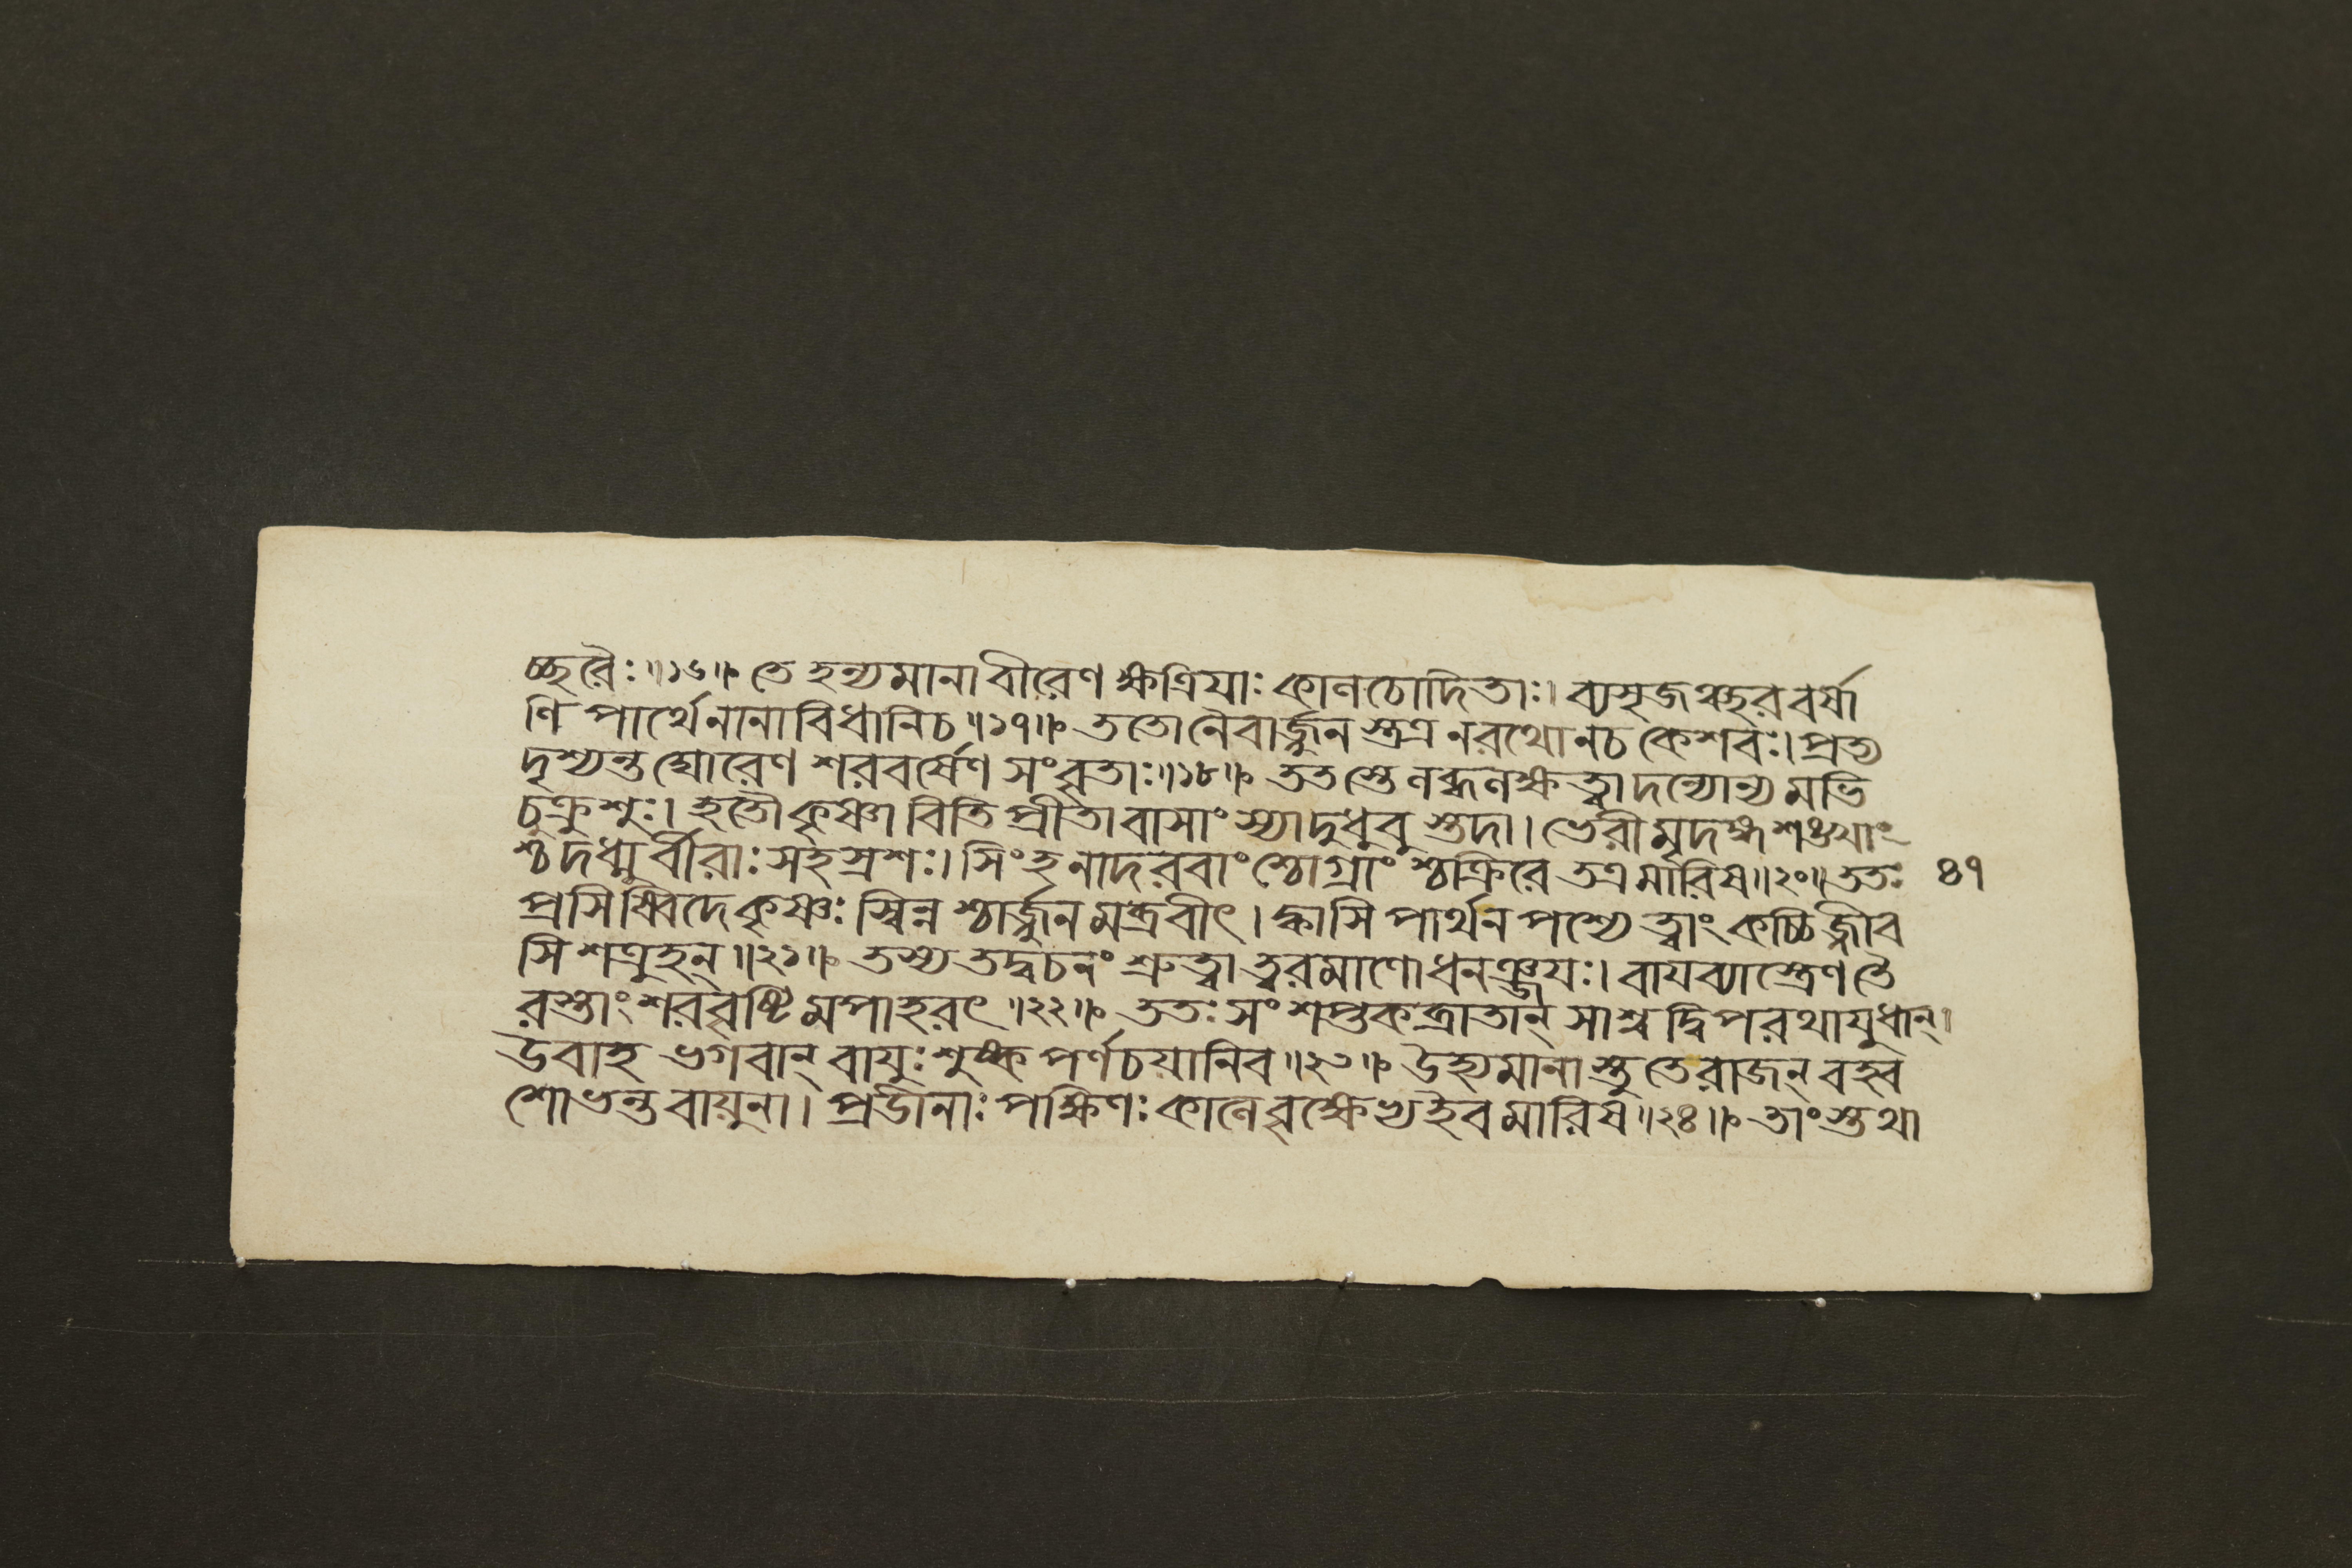 চ্ছরৈঃ॥১৬॥ তে হন্যমানাবীরেণ ক্ষত্রিযাঃ কালচোদিতাঃ। ব্যসৃজঞ্ছরবর্ষা
ণি পার্থেনানাবিধানিচ॥১৭॥ ততোনৈবার্জ্জুনস্তত্র নরথোনচ কেশবঃ। প্রত্য
দৃশ্যন্তঘোরেণ শরবর্ষেণ সংবৃতাঃ॥১৮॥ ততস্তেলব্ধলক্ষত্বাদন্যোন্যমভি
চুক্রুশুঃ। হতৌকৃষ্ণাবিতি প্রীতাবাসাং স্যাদুধুবুস্তদা। ভেরীমৃদঙ্গশঙ্খাং
শ্চদধ্মুর্বীরাঃসহস্রশঃ। সিংহনাদরবাংশ্চোগ্রাংশ্চক্রিরে তত্রমারিষ॥২০॥ততঃ ৪৭
প্রসিষ্বিদেকৃষ্ণঃ স্বিন্নশ্চার্জ্জুনমব্রবীৎ। ক্বাসি পার্থনপশ্যেত্বাং কচ্চিজ্জীব
সি শত্রুহন্॥২১॥ তস্যতদ্বচনং শ্রুত্বা ত্বরমাণোধনঞ্জযঃ। বাযব্যাস্ত্রেণতৈ
রস্তাংশরবৃষ্টিমপাহরৎ॥২২॥ ততঃসংশপ্তকব্রাতান্ সাশ্বদ্বিপরথাযুধান্।
উবাহ ভগবান্ বাযুঃশুষ্কপর্ণচয়ানিব॥২৩॥ উহ্যমানাস্তুতেরাজন্ বহ্ব
শোভন্তবায়ুনা। প্রডীনাঃপক্ষিণঃকালেবৃক্ষেভ্যইবমারিষ॥২৪॥ তাংস্তথা